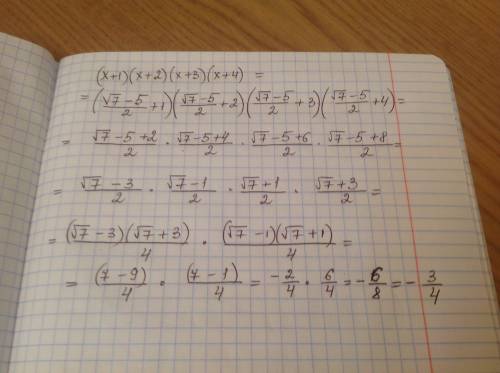 (x+1)(x+2)(x+3)(x+4) =
= ((√7-5)/2 + 1)((√7-5)/2 + 2)((√7-5)/2 + 3)((√7-5)/2 + 4) =
= (√7-5+2)/2 · (√7-5+4)/2 · (√7-5+6)/2 · (√7-5+8)/2 =
= (√7-3)/2 · (√7-1)/2 · (√7+1)/2 · (√7+3)/2 =
= (√7-3)(√7+3)/4 · (√7-1)(√7+1)/4 =
= (7-9)/4 · (7-1)/4 = -2/4 · 6/4 = -6/8 = -3/4